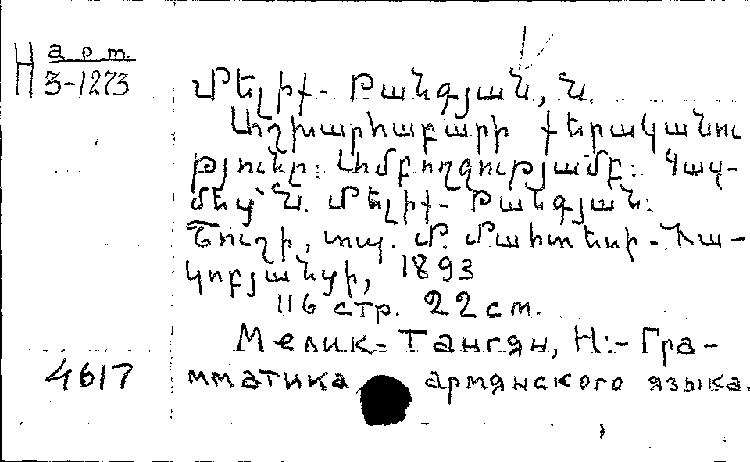 H арт.
3-1273
Մելիք-Թանգյան, Ն.
Աշխարհաբարի քերականու
թյունը: Ամբողջությամբ: Կազ-
մեց՝ Ն. Մելիք-Թանգյան:
Շուշի, տպ. Մ. Մահտեսի-Հա-
կոբյանցի, 1893
116 стр. 22 см.
Мелик-Тангян, Н.-Гра-
4617 мматика армянского языка.